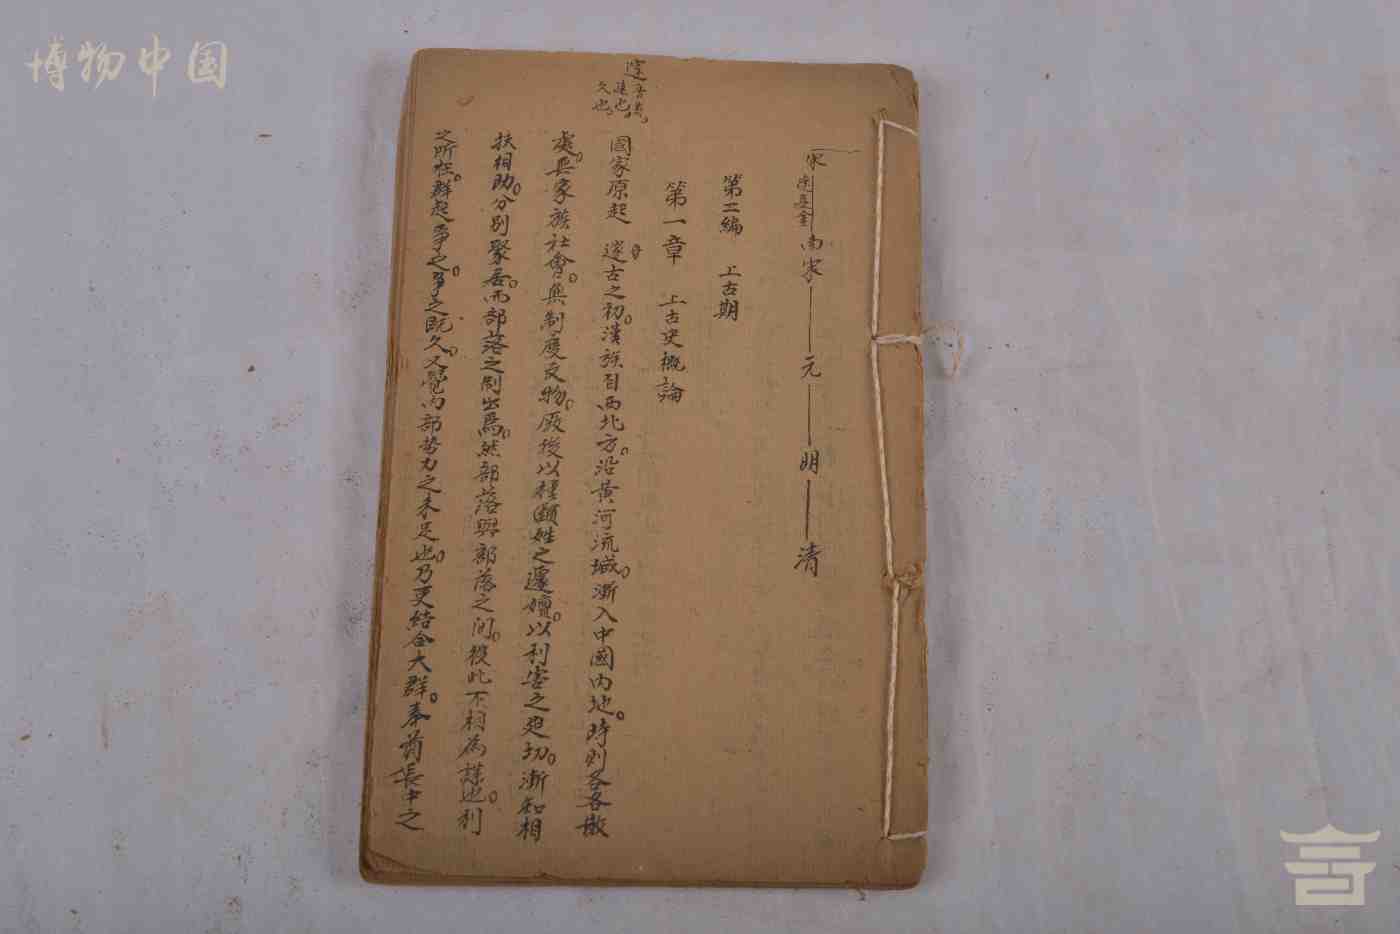 博物中国
宋 遼夏金 南宋——元——明——清
第二編 上古期
第一章 上古史概論
邃音遂
遠也
久也
國家原起 邃古之初。漢族自西北方。沿黃河流域。漸入中國內地。時則各各散
處。無家族社會。無制度文物。厥後以種類姓之遷嬗。以利害之迫切。漸知相
扶相助。分别聚居。而部落之制出焉。然部落與部落之间。彼此不相為謀也。利
之所在。群起爭之。爭之既久。又覺內部势力之未足也。乃更結合大群。奉酋長中之